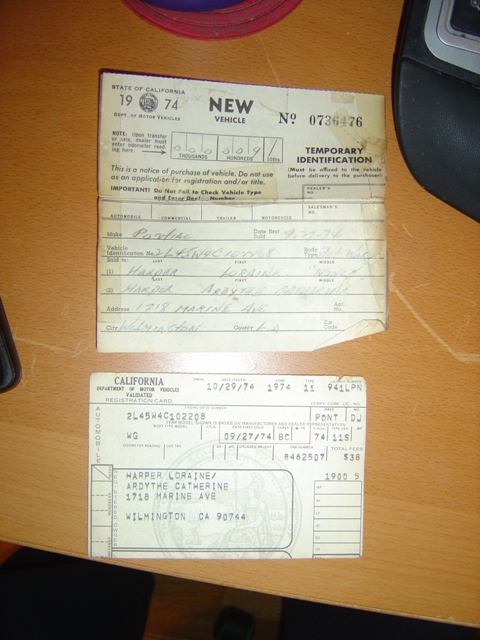 STATE OF CALIFORNIA
19 74
DEPT. OF MOTOR VEHICLES
NEW
VEHICLE
Nº 0736476
NOTE: Upon transfer
or sale, dealer must
enter odometer read-
ing here.
0 0 0 0 0 9 1
THOUSANDS HUNDREDS 10ths
TEMPORARY
IDENTIFICATION
(Must be affixed to the vehicle
before delivery to the purchaser)
This is a notice of purchase of vehicle. Do not use
as an application for registration and/or title.
IMPORTANT! Do Not Fail to Check Vehicle Type
and Enter Number
DEALER'S
NO.
SALESMAN'S
NO.
AUTOMOBILE COMMERCIAL TRAILER MOTORCYCLE
Make Pontiac Date first
Sold 9-27-74
Vehicle
Identification No. 2L45W4C102208 Body
Type
Sold to: LAST FIRST MIDDLE
(1) HARPER LORAINE
(2) HARPER ARDYTHE CATHERINE
Address 1718 MARINE AVE Apt.
No.
City WILMINGTON County L.A. Zip
Code
CALIFORNIA
DEPARTMENT OF MOTOR VEHICLES
VALIDATED
REGISTRATION CARD
DATE ISSUED
10/29/74 1974 11 941LPN
2L45W4C102208 PONT DJ
YEAR MODEL SHOWN IS BASED ON MANUFACTURER AND DEALER REPRESENTATION
BODY TYPE MODEL DATE FIRST SOLD CLASS
WG 09/27/74 BC 74 11S
TOTAL FEES
8462507 $38
AUTOMOBILE
HARPER LORAINE/
ARDYTHE CATHERINE
1718 MARINE AVE
WILMINGTON CA 90744
1900 5